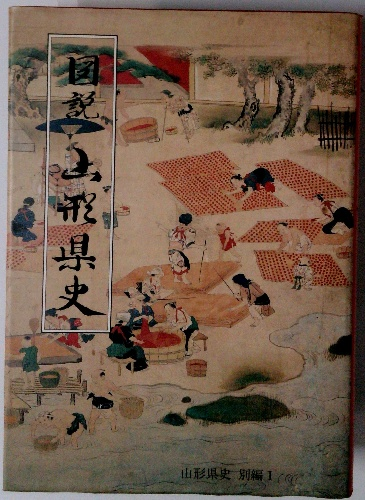 図説
山形県史
山形県史 別編Ⅰ